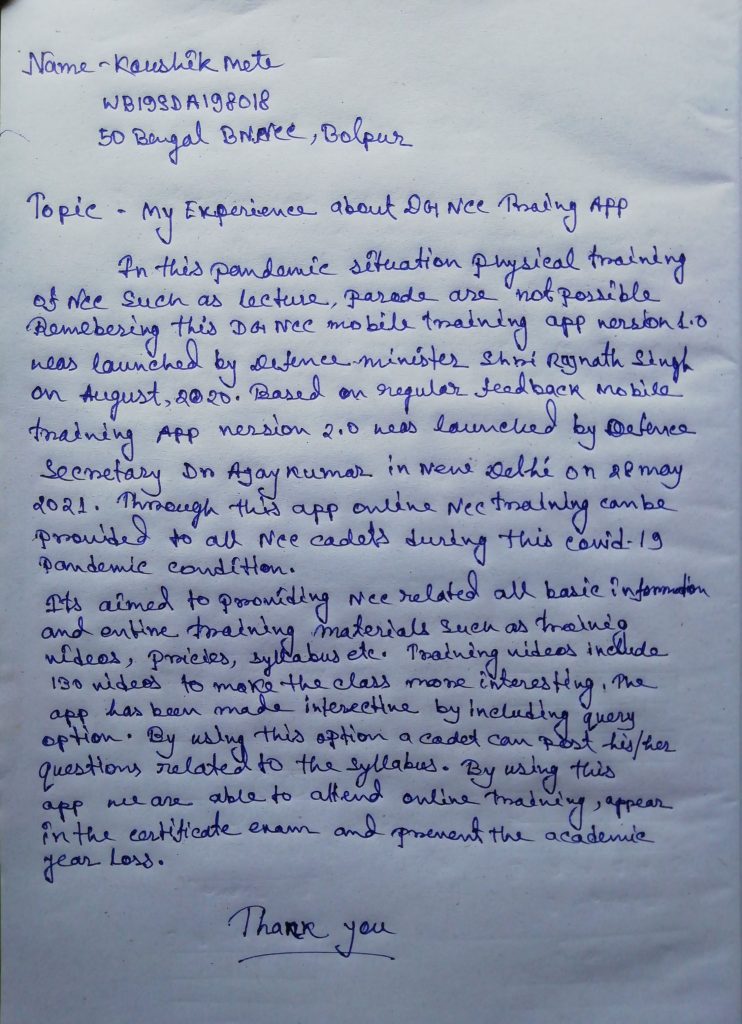 Name - Kaushik Mete
WB19SDA198018
50 Bengal BN NCC, Bolpur
Topic - My Experience about DG NCC Traing App
In this pandemic situation physical training
of NCC Such as lecture, parade are not possible
Remebering this DG NCC mobile training app version 1.0
was launched by Defence minister Shri Rajnath Singh
on August, 2020. Based on regular feedback Mobile
training App version 2.0 was launched by Defence
Secretary Dr Ajay Kumar in New Delhi on 28 may
2021. Through this app online NCC training can be
provided to all NCC cadets during this covid-19
pandemic condition.
Its aimed to providing NCC related all basic information
and entire training materials such as trainig
videos, precies, syllabus etc. Training videos include
130 videos to make the class more interesting. The
app has been made interective by including query
option. By using this option a cadet can post his/her
questions related to the syllabus. By using this
app we are able to attend online training, appear
in the certificate exam and prevent the academic
year loss.
Thank you